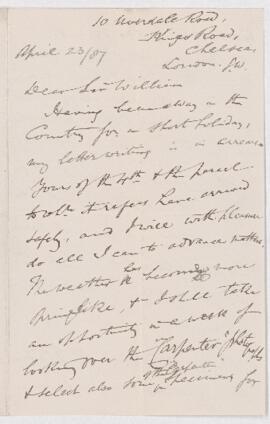 10 Uverdale Road,
Kings Road,
Chelsea
London. S.W.
April 23/87
Dear Sir William
Having been away in the
Country for a short holiday,
my letter writing is in arrears
Yours of the 4th & the parcel
to refer have arrived
safely, and I will with pleasure
do all I can to advance matters.
The weather has become more
Springlike, & I shall take
an opportunity in a week of
looking over the "Carpenter"
& select also some specimens for